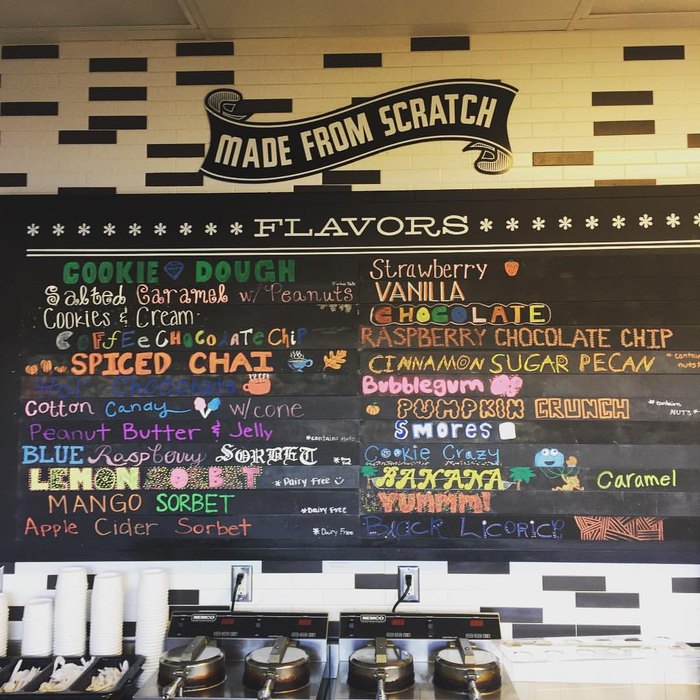 MADE FROM SCRATCH
FLAVORS
COOKIE DOUGH
Salted Caramel w/ Peanuts
Cookies & Cream
Coffee Chocolate Chip
SPICED CHAI
Hot Chocolate
Cotton Candy w/cone
Peanut Butter & Jelly *contains nuts
BLUE Raspberry SORBET
LEMON SORBET *Dairy Free
MANGO SORBET *Dairy Free
Apple Cider Sorbet *Dairy Free
Strawberry
VANILLA
CHOCOLATE
RASPBERRY CHOCOLATE CHIP
CINNAMON SUGAR PECAN *contains nuts
Bubblegum
PUMPKIN CRUNCH *contains NUTS
Smores
Cookie Crazy
BANANA Caramel
YUMMM!
Black Licorice
NEMCO
NEMCO